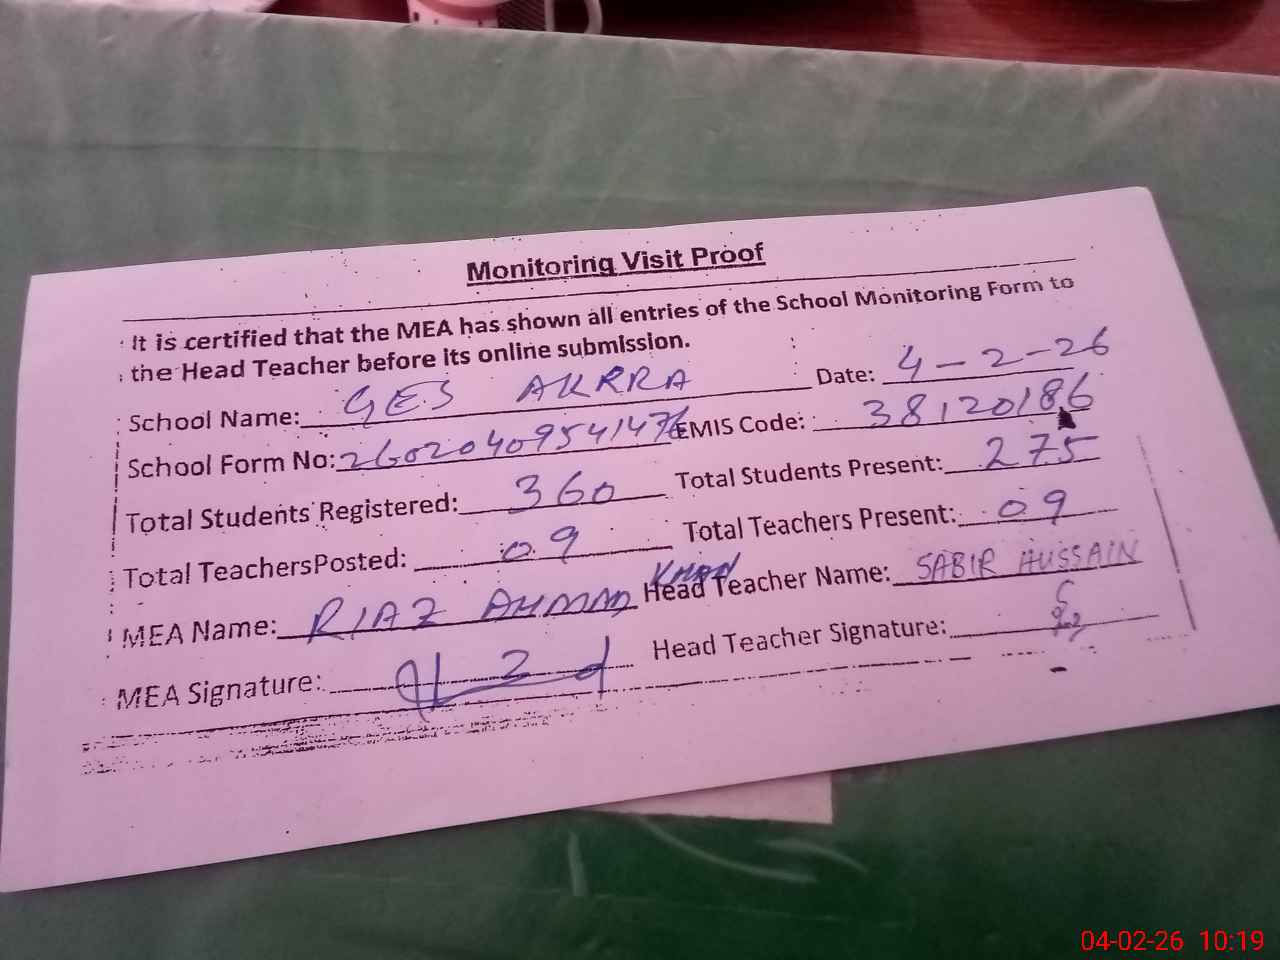 Monitoring Visit Proof
It is certified that the MEA has shown all entries of the School Monitoring Form to
the Head Teacher before its online submission.
School Name: GES AKRRA Date: 4-2-26
School Form No: 26020409541476 EMIS Code: 38120186
Total Students Registered: 360 Total Students Present: 275
Total TeachersPosted: 09 Total Teachers Present: 09
MEA Name: RIAZ AHMAD KHAN Head Teacher Name: SABIR HUSSAIN
MEA Signature: Head Teacher Signature:
04-02-26 10:19